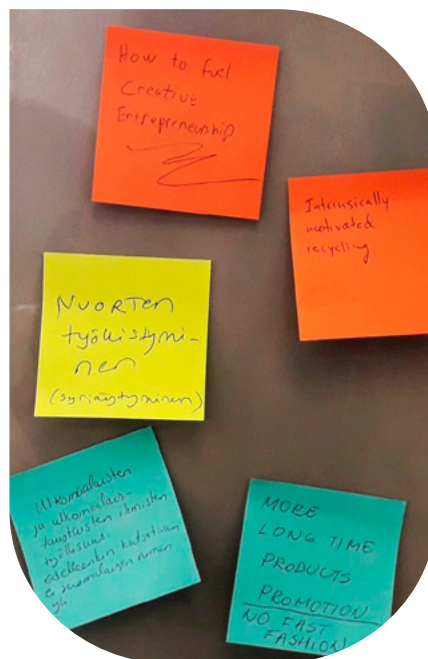 How to fuel
Creative
Entrepreneurship
Intrinsically
motivated
recycling
NUORTEN
työllistymi-
nen
(syrjäytyminen)
Ulkomaalaisten
ja ulkomaalais-
taustaisten ihmisten
työllisuus.
edelleenkin katsotaan
ei suomalaisen nimen
yli.
MORE
LONG TIME
PRODUCTS
PROMOTION
NO FAST
FASHION